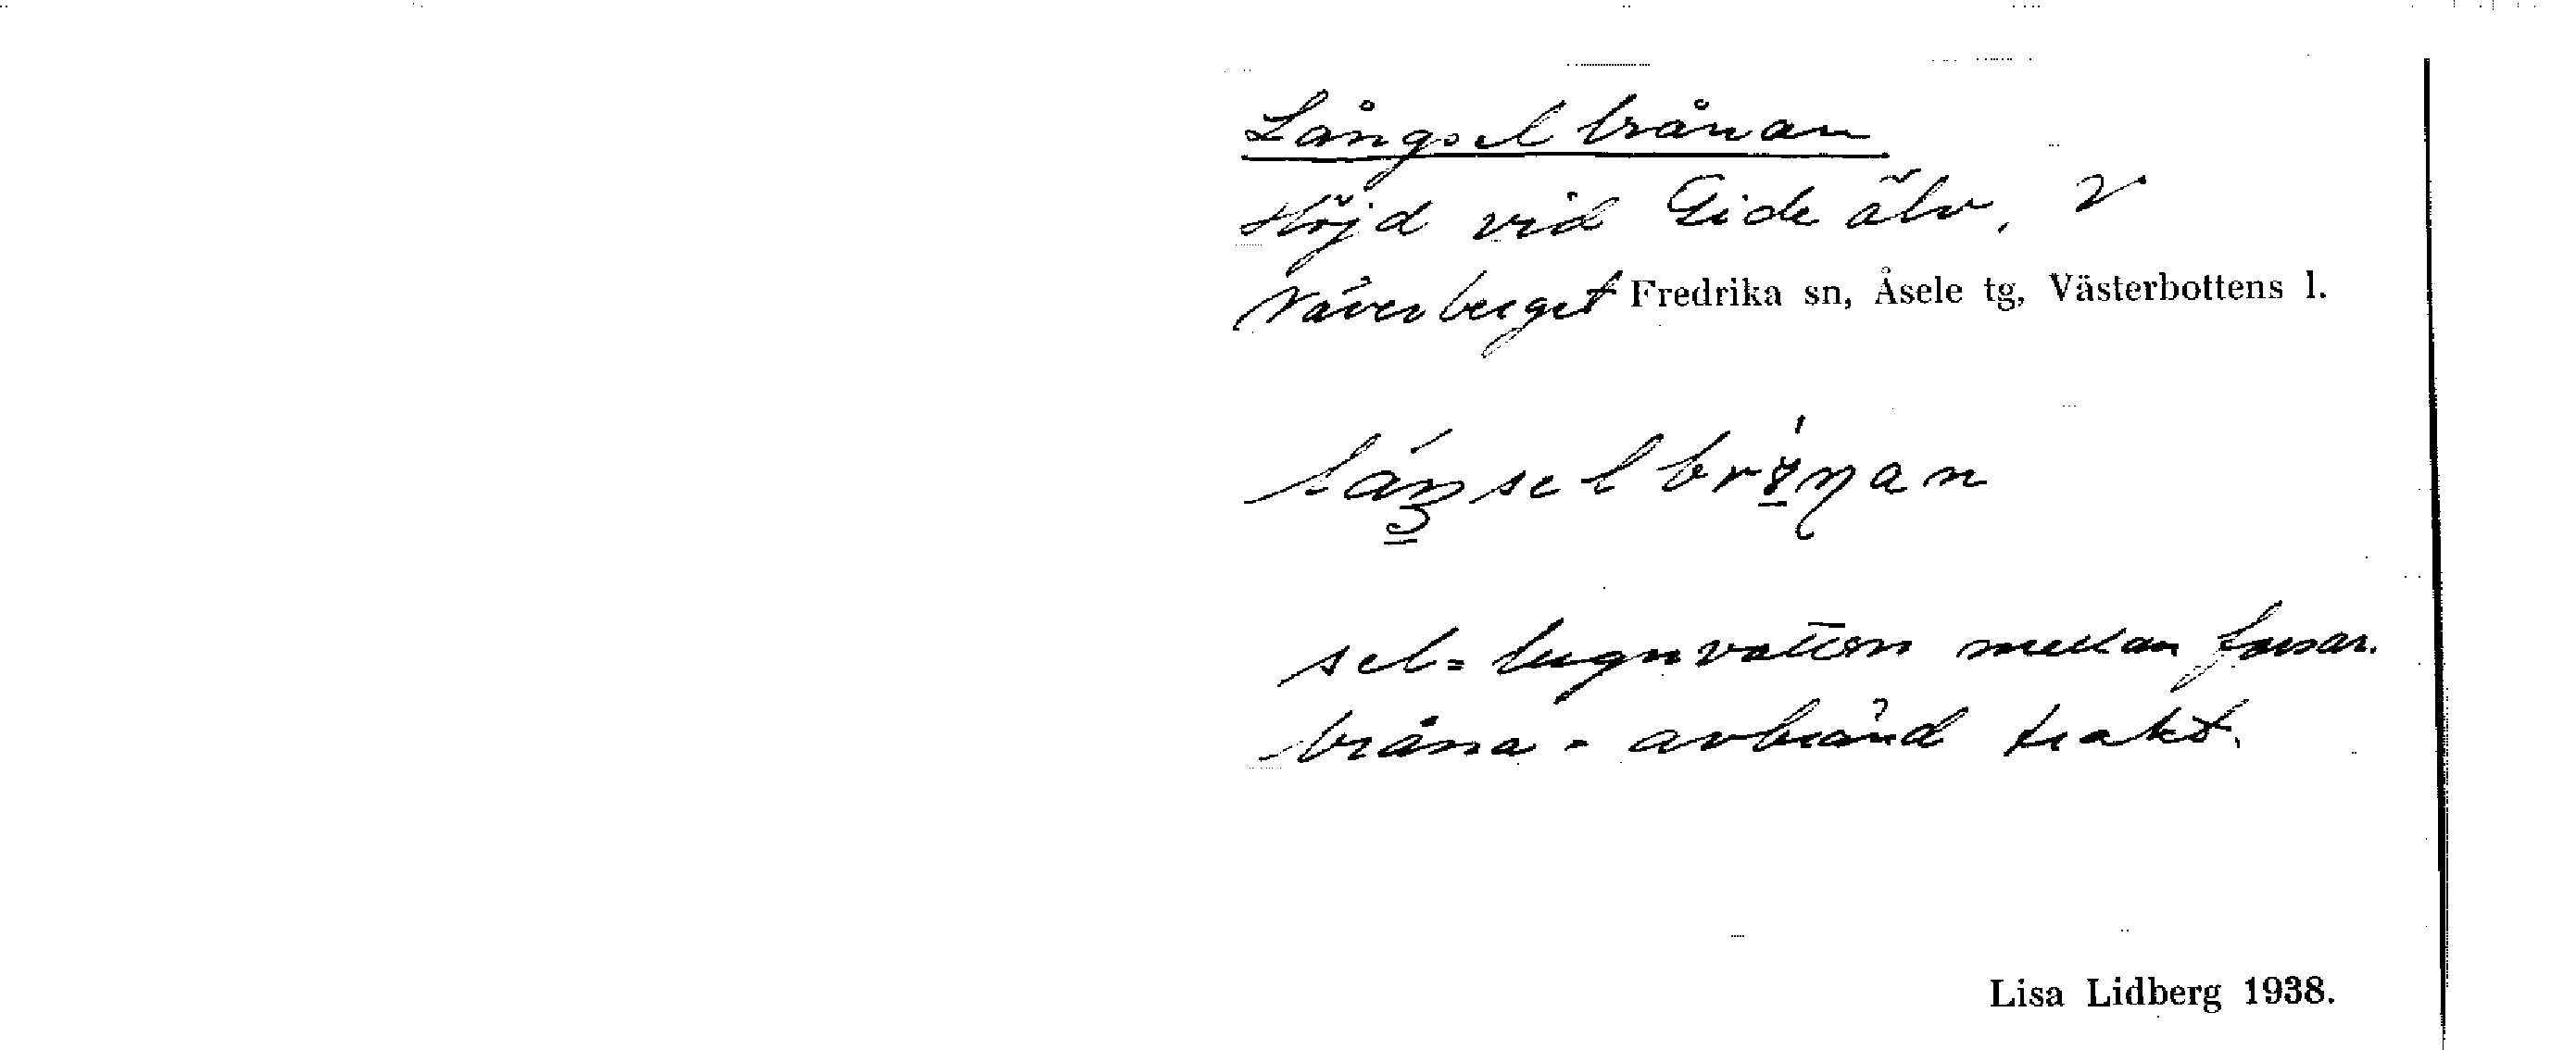 Långselbrånan
Höjd vid Gide älv, V
Näverberget Fredrika sn, Åsele tg, Västerbottens l.
sel = lugnvatten mellan forsar.
bråna - avbränd trakt.
Lisa Lidberg 1938.